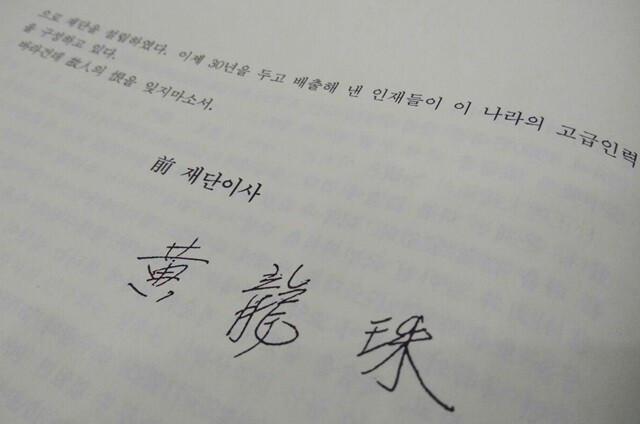 으로 재단을 설립하였다. 이제 30년을 두고 배출해 낸 인재들이 이 나라의 고급인력
을 구성하고 있다.
바라건데 故人의 恨을 잊지마소서.
前 재단이사
黃龍珠